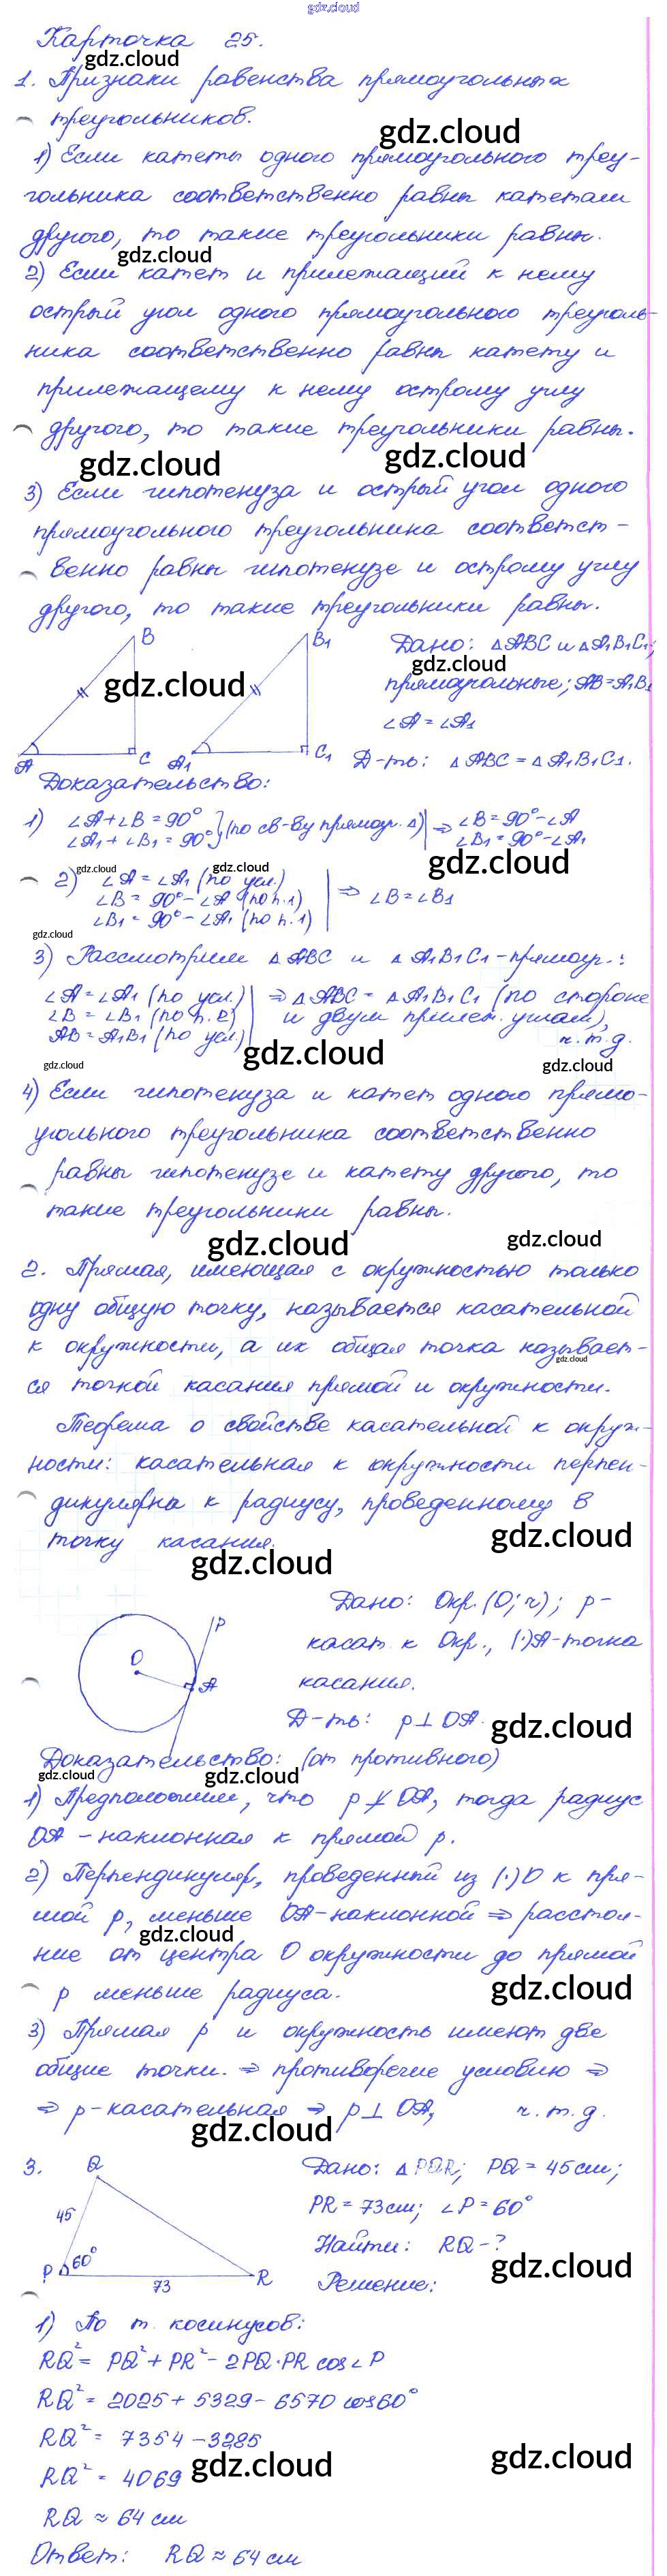 gdz.cloud
Карточка 25.
gdz.cloud
1. Признаки равенства прямоугольных
треугольников.
gdz.cloud
1) Если катеты одного прямоугольного треу-
гольника соответственно равны катетам
другого, то такие треугольники равны.
gdz.cloud
2) Если катет и прилежащий к нему
острый угол одного прямоугольного треуголь-
ника соответственно равны катету и
прилежащему к нему острому углу
другого, то такие треугольники равны.
gdz.cloud gdz.cloud
3) Если гипотенуза и острый угол одного
прямоугольного треугольника соответст-
венно равны гипотенузе и острому углу
другого, то такие треугольники равны.
B B1 Дано: △ABC и △A1B1C1;
gdz.cloud
gdz.cloud прямоугольные; AB=A1B1
∠A=∠A1
A C A1 C1 Д-ть: △ABC=△A1B1C1.
Доказательство:
1) ∠A+∠B=90° } (по св-ву прямоуг. △) | ⇒ ∠B=90°-∠A
∠A1+∠B1=90° ∠B1=90°-∠A1
gdz.cloud gdz.cloud gdz.cloud
2) ∠A=∠A1 (по усл.)
∠B=90°-∠A (по п.1) | ⇒ ∠B=∠B1
∠B1=90°-∠A1 (по п.1)
gdz.cloud
3) Рассмотрим △ABC и △A1B1C1-прямоуг.:
∠A=∠A1 (по усл.) | ⇒ △ABC=△A1B1C1 (по стороне
∠B=∠B1 (по п.2) и двум прилеж. углам),
AB=A1B1 (по усл.) ч.т.д.
gdz.cloud gdz.cloud gdz.cloud
4) Если гипотенуза и катет одного прямо-
угольного треугольника соответственно
равны гипотенузе и катету другого, то
такие треугольники равны.
gdz.cloud gdz.cloud
2. Прямая, имеющая с окружностью только
одну общую точку, называется касательной
к окружности, а их общая точка называет-
gdz.cloud
ся точкой касания прямой и окружности.
Теорема о свойстве касательной к окруж-
ности: касательная к окружности перпен-
дикулярна к радиусу, проведенному в
точку касания.
gdz.cloud gdz.cloud
Дано: Окр.(O;r); p-
P касат. к Окр., (·)A-точка
O A касания.
Д-ть: p⊥OA. gdz.cloud
Доказательство: (от противного)
gdz.cloud gdz.cloud
1) Предположим, что p ⊥̸ OA, тогда радиус
OA-наклонная к прямой p.
2) Перпендикуляр, проведенный из (·)O к пря-
мой p, меньше OA-наклонной ⇒ расстоя-
gdz.cloud
ние от центра O окружности до прямой
p меньше радиуса.
gdz.cloud
3) Прямая p и окружность имеют две
общие точки. ⇒ противоречие условию ⇒
⇒ p-касательная ⇒ p⊥OA, ч.т.д.
gdz.cloud
3. Q Дано: △PQR; PQ=45см;
45 PR=73см; ∠P=60°
P 60° Найти: RQ-?
gdz.cloud
73 R Решение:
1) По т. косинусов:
RQ²=PQ²+PR²-2PQ·PR cos∠P
RQ²=2025+5329-6570 cos60°
RQ²=7354-3285
gdz.cloud gdz.cloud
RQ²=4069
RQ≈64 см
Ответ: RQ≈64 см